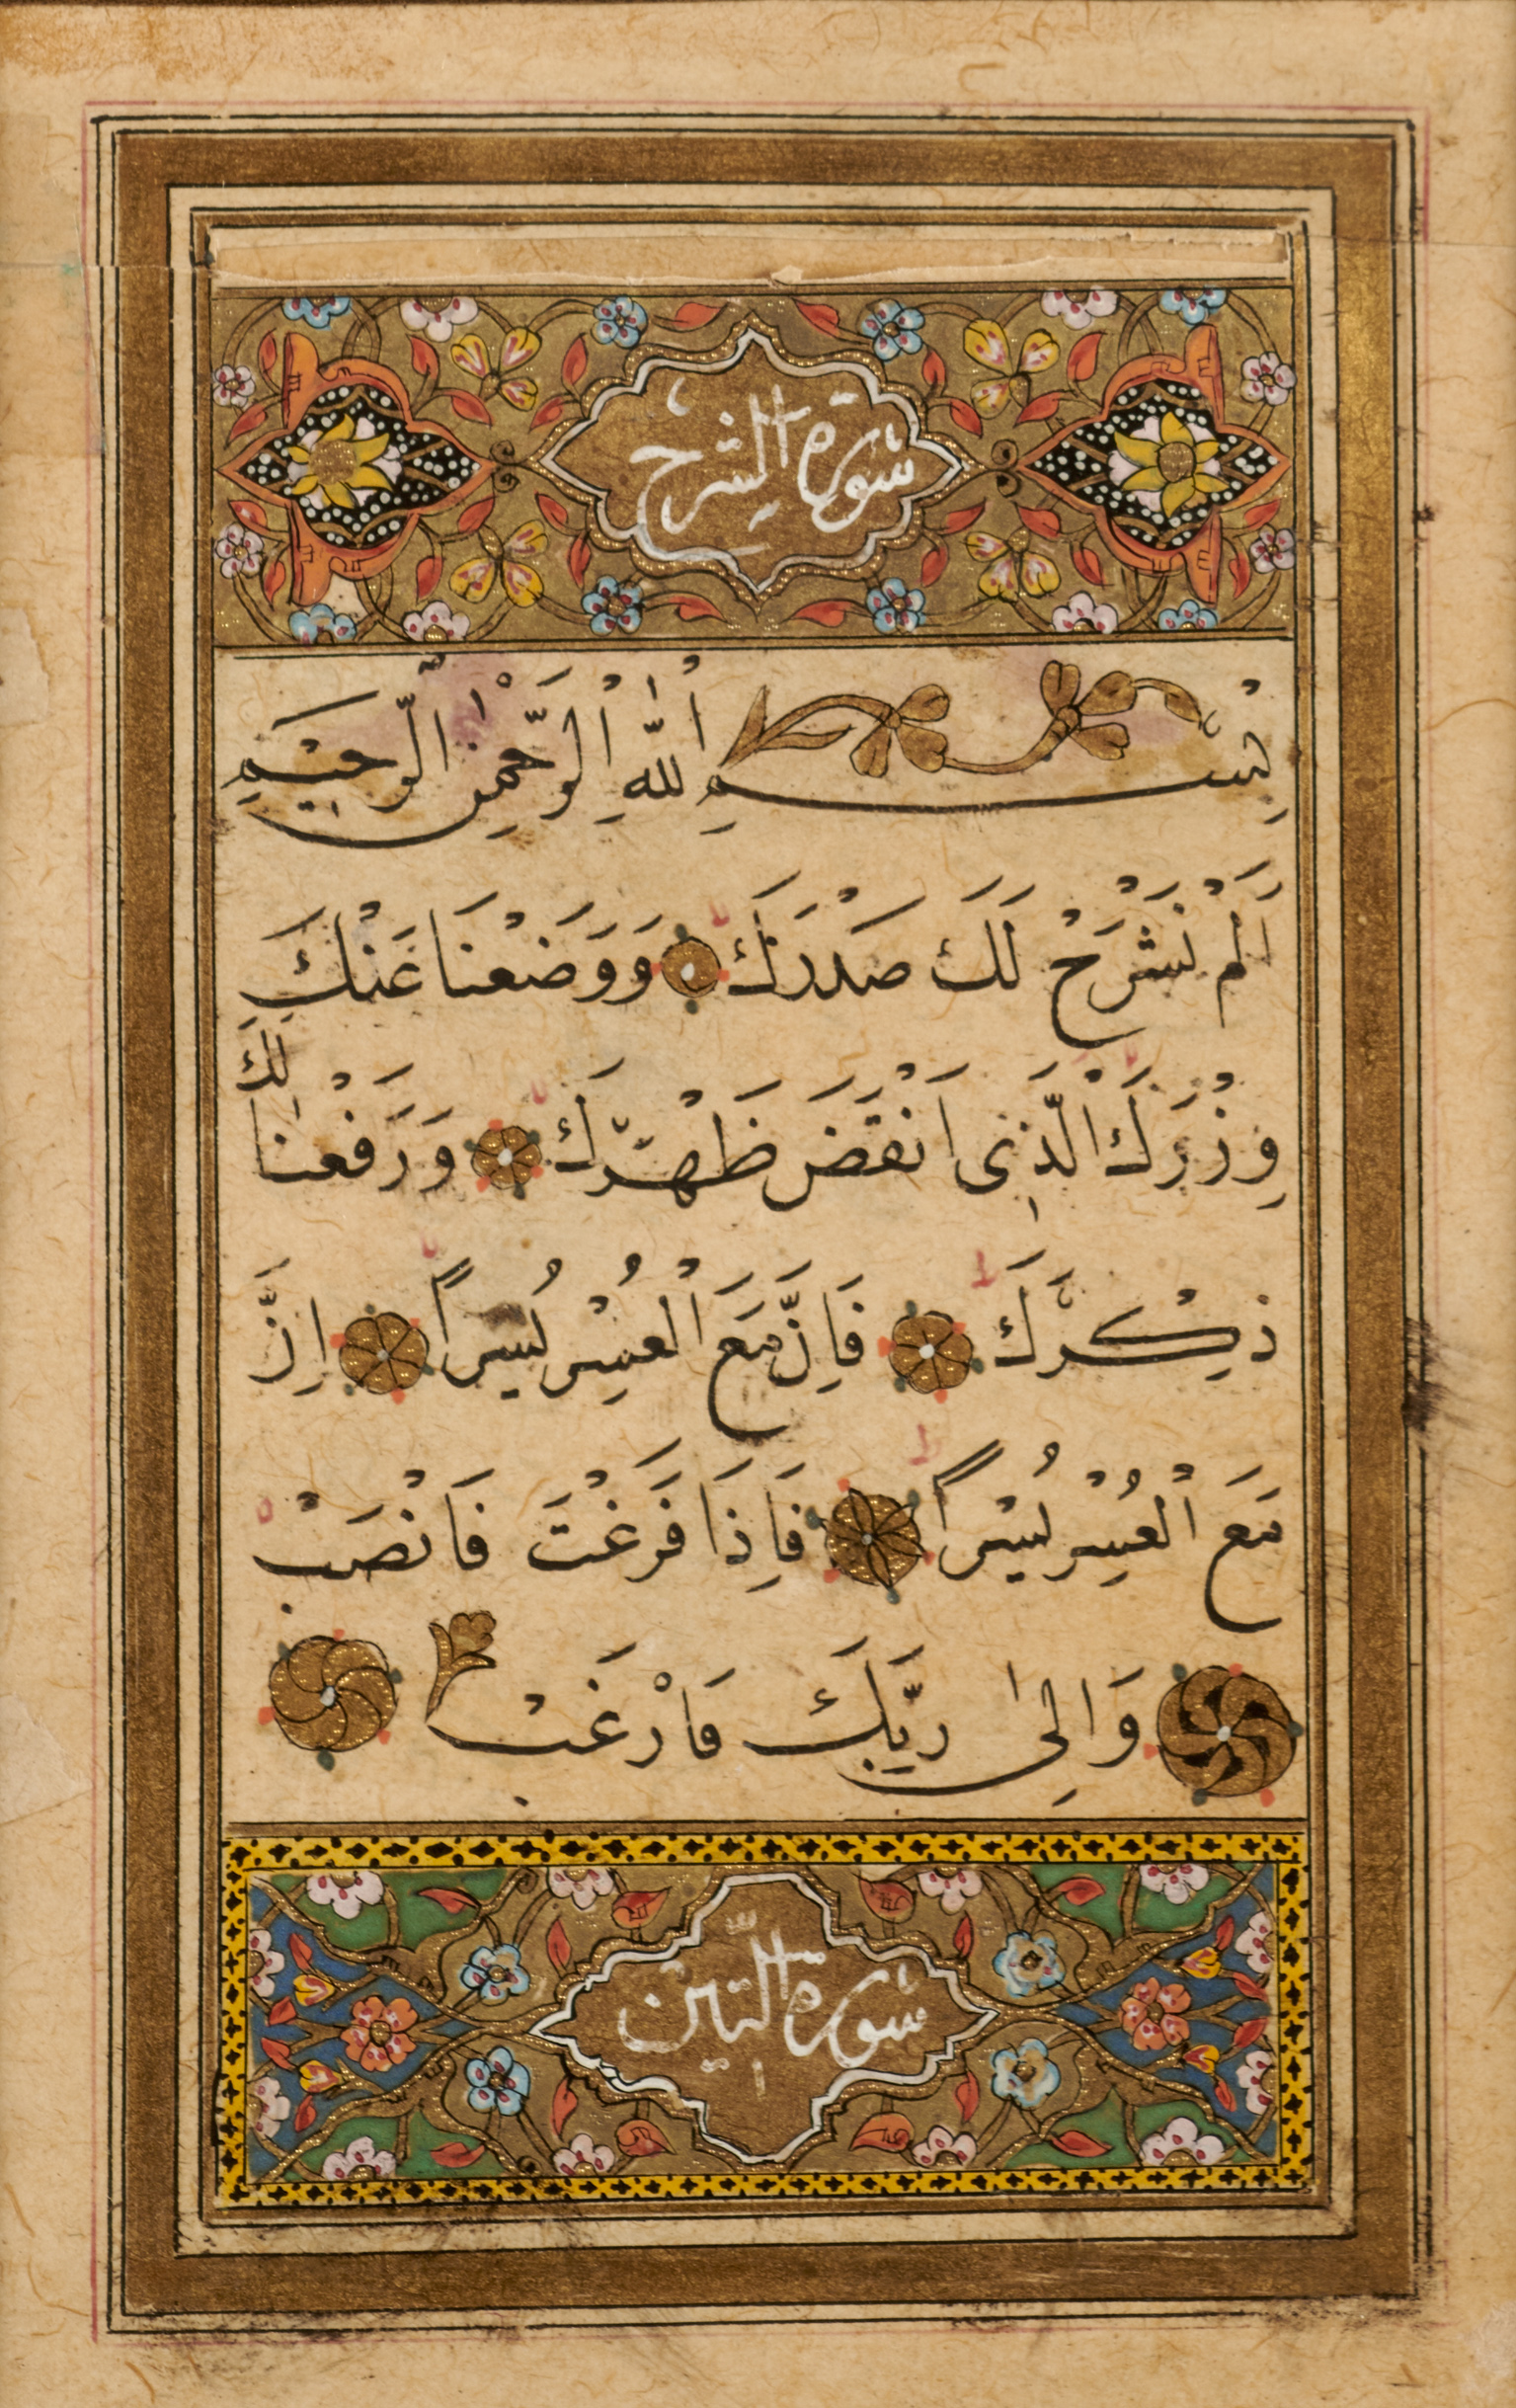 سورة الشرح
بِسْمِ اللّٰهِ الرَّحْمٰنِ الرَّحِيمِ
اَلَمْ نَشْرَحْ لَكَ صَدْرَكَ وَوَضَعْنَا عَنْكَ
وِزْرَكَ الَّذِى اَنْقَضَ ظَهْرَكَ وَرَفَعْنَا لَكَ
ذِكْرَكَ فَاِنَّ مَعَ الْعُسْرِ يُسْرًا اِنَّ
مَعَ الْعُسْرِ يُسْرًا فَاِذَا فَرَغْتَ فَانْصَبْ
وَاِلٰى رَبِّكَ فَارْغَبْ
سورة التّين